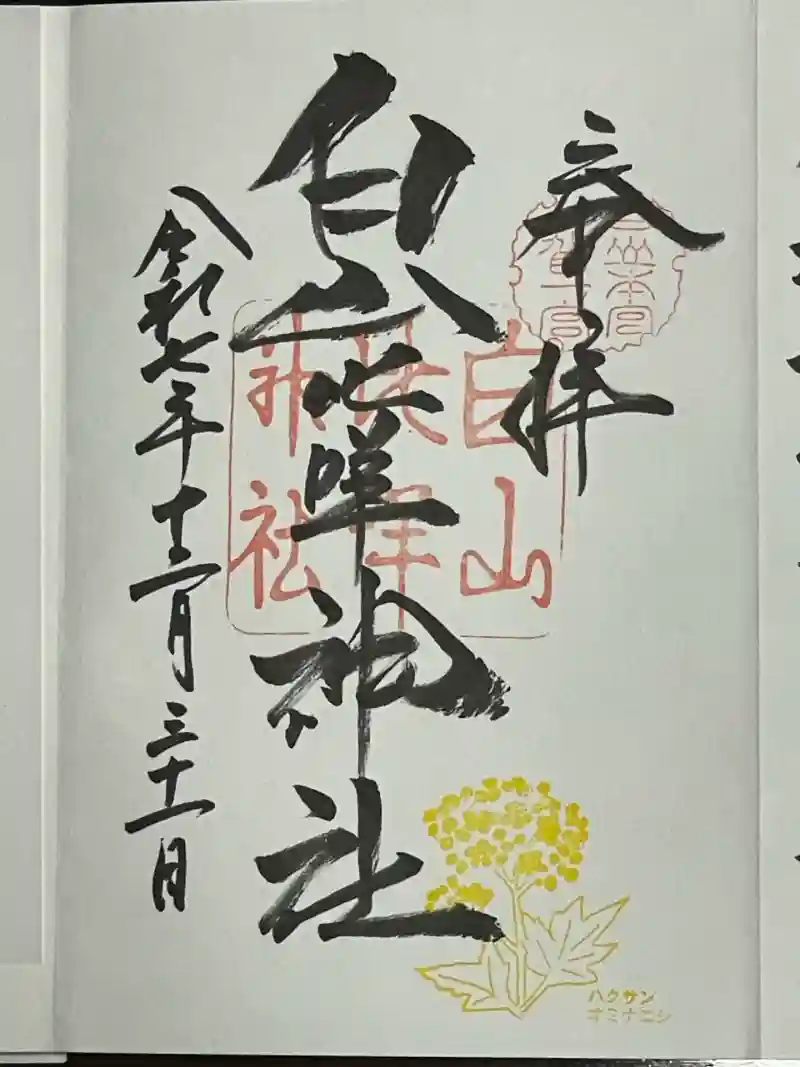 奉拝
白山比咩神社
令和七年十二月三十一日
白山
比咩
神社
ハクサン
オミナエシ